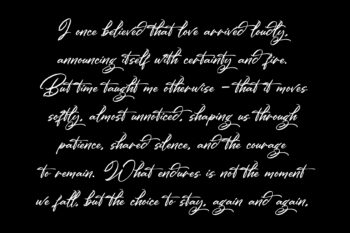 I once believed that love arrived loudly,
announcing itself with certainty and fire.
But time taught me otherwise – that it moves
softly, almost unnoticed, shaping us through
patience, shared silence, and the courage
to remain. What endures is not the moment
we fall, but the choice to stay, again and again.